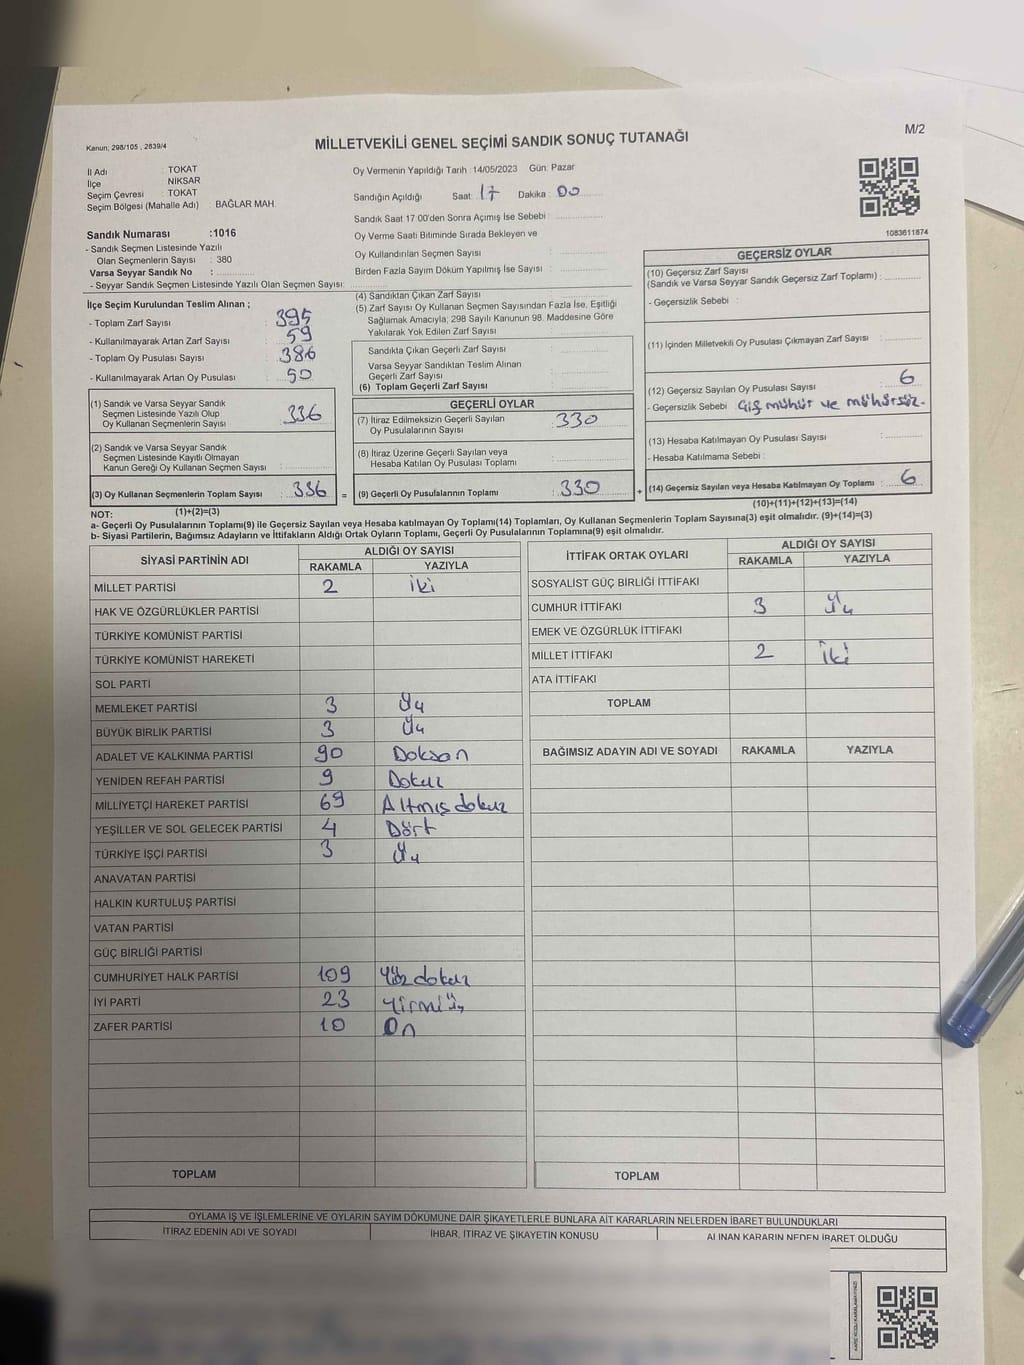 M/2
Kanun; 298/105 , 2839/4
MİLLETVEKİLİ GENEL SEÇİMİ SANDIK SONUÇ TUTANAĞI
İl Adı : TOKAT
İlçe NİKSAR
Seçim Çevresi : TOKAT
Seçim Bölgesi (Mahalle Adı) : BAĞLAR MAH.
Sandık Numarası :1016
- Sandık Seçmen Listesinde Yazılı
Olan Seçmenlerin Sayısı : 380
Varsa Seyyar Sandık No :
- Seyyar Sandık Seçmen Listesinde Yazılı Olan Seçmen Sayısı:
Oy Vermenin Yapıldığı Tarih :14/05/2023 Gün: Pazar
Sandığın Açıldığı Saat: 17 Dakika : 00
Sandık Saat 17 00'den Sonra Açımış İse Sebebi :
Oy Verme Saati Bitiminde Sırada Bekleyen ve
Oy Kullandırılan Seçmen Sayısı :
Birden Fazla Sayım Döküm Yapılmış İse Sayısı :
1083611874
İlçe Seçim Kurulundan Teslim Alınan ;
- Toplam Zarf Sayısı : 395
- Kullanılmayarak Artan Zarf Sayısı : 59
- Toplam Oy Pusulası Sayısı : 386
- Kullanılmayarak Artan Oy Pusulası : 50
(1) Sandık ve Varsa Seyyar Sandık
Seçmen Listesinde Yazılı Olup
Oy Kullanan Seçmenlerin Sayısı : 336
(2) Sandık ve Varsa Seyyar Sandık
Seçmen Listesinde Kayıtlı Olmayan
Kanun Gereği Oy Kullanan Seçmen Sayısı :
(3) Oy Kullanan Seçmenlerin Toplam Sayısı : 336 =
(4) Sandıktan Çıkan Zarf Sayısı :
(5) Zarf Sayısı Oy Kullanan Seçmen Sayısından Fazla İse, Eşitliği
Sağlamak Amacıyla; 298 Sayılı Kanunun 98. Maddesine Göre
Yakılarak Yok Edilen Zarf Sayısı :
Sandıkta Çıkan Geçerli Zarf Sayısı :
Varsa Seyyar Sandıktan Teslim Alınan
Geçerli Zarf Sayısı :
(6) Toplam Geçerli Zarf Sayısı :
GEÇERLİ OYLAR
(7) İtiraz Edilmeksizin Geçerli Sayılan
Oy Pusulalarının Sayısı : 330
(8) İtiraz Üzerine Geçerli Sayılan veya
Hesaba Katılan Oy Pusulası Toplamı :
(9) Geçerli Oy Pusulalarının Toplamı : 330 +
GEÇERSİZ OYLAR
(10) Geçersiz Zarf Sayısı
(Sandık ve Varsa Seyyar Sandık Geçersiz Zarf Toplamı) :
- Geçersizlik Sebebi :
(11) İçinden Milletvekili Oy Pusulası Çıkmayan Zarf Sayısı :
(12) Geçersiz Sayılan Oy Pusulası Sayısı : 6
- Geçersizlik Sebebi : Çift mühür ve mühürsüz.
(13) Hesaba Katılmayan Oy Pusulası Sayısı :
- Hesaba Katılmama Sebebi :
(14) Geçersiz Sayılan veya Hesaba Katılmayan Oy Toplamı : 6
NOT: (1)+(2)=(3)
(10)+(11)+(12)+(13)=(14)
a- Geçerli Oy Pusulalarının Toplamı(9) ile Geçersiz Sayılan veya Hesaba katılmayan Oy Toplamı(14) Toplamları, Oy Kullanan Seçmenlerin Toplam Sayısına(3) eşit olmalıdır. (9)+(14)=(3)
b- Siyasi Partilerin, Bağımsız Adayların ve İttifakların Aldığı Ortak Oyların Toplamı, Geçerli Oy Pusulalarının Toplamına(9) eşit olmalıdır.
SİYASİ PARTİNİN ADI ALDIĞI OY SAYISI
RAKAMLA YAZIYLA
MİLLET PARTİSİ 2 iki
HAK VE ÖZGÜRLÜKLER PARTİSİ
TÜRKİYE KOMÜNİST PARTİSİ
TÜRKİYE KOMÜNİST HAREKETİ
SOL PARTİ
MEMLEKET PARTİSİ 3 Üç
BÜYÜK BİRLİK PARTİSİ 3 Üç
ADALET VE KALKINMA PARTİSİ 90 Doksan
YENİDEN REFAH PARTİSİ 9 Dokuz
MİLLİYETÇİ HAREKET PARTİSİ 69 Altmış dokuz
YEŞİLLER VE SOL GELECEK PARTİSİ 4 Dört
TÜRKİYE İŞÇİ PARTİSİ 3 Üç
ANAVATAN PARTİSİ
HALKIN KURTULUŞ PARTİSİ
VATAN PARTİSİ
GÜÇ BİRLİĞİ PARTİSİ
CUMHURİYET HALK PARTİSİ 109 Yüz dokuz
İYİ PARTİ 23 Yirmiüç
ZAFER PARTİSİ 10 On
TOPLAM
İTTİFAK ORTAK OYLARI ALDIĞI OY SAYISI
RAKAMLA YAZIYLA
SOSYALİST GÜÇ BİRLİĞİ İTTİFAKI
CUMHUR İTTİFAKI 3 Üç
EMEK VE ÖZGÜRLÜK İTTİFAKI
MİLLET İTTİFAKI 2 iki
ATA İTTİFAKI
TOPLAM
BAĞIMSIZ ADAYIN ADI VE SOYADI RAKAMLA YAZIYLA
TOPLAM
OYLAMA İŞ VE İŞLEMLERİNE VE OYLARIN SAYIM DÖKÜMÜNE DAİR ŞİKAYETLERLE BUNLARA AİT KARARLARIN NELERDEN İBARET BULUNDUKLARI
İTİRAZ EDENİN ADI VE SOYADI İHBAR, İTİRAZ VE ŞİKAYETİN KONUSU ALINAN KARARIN NEDEN İBARET OLDUĞU